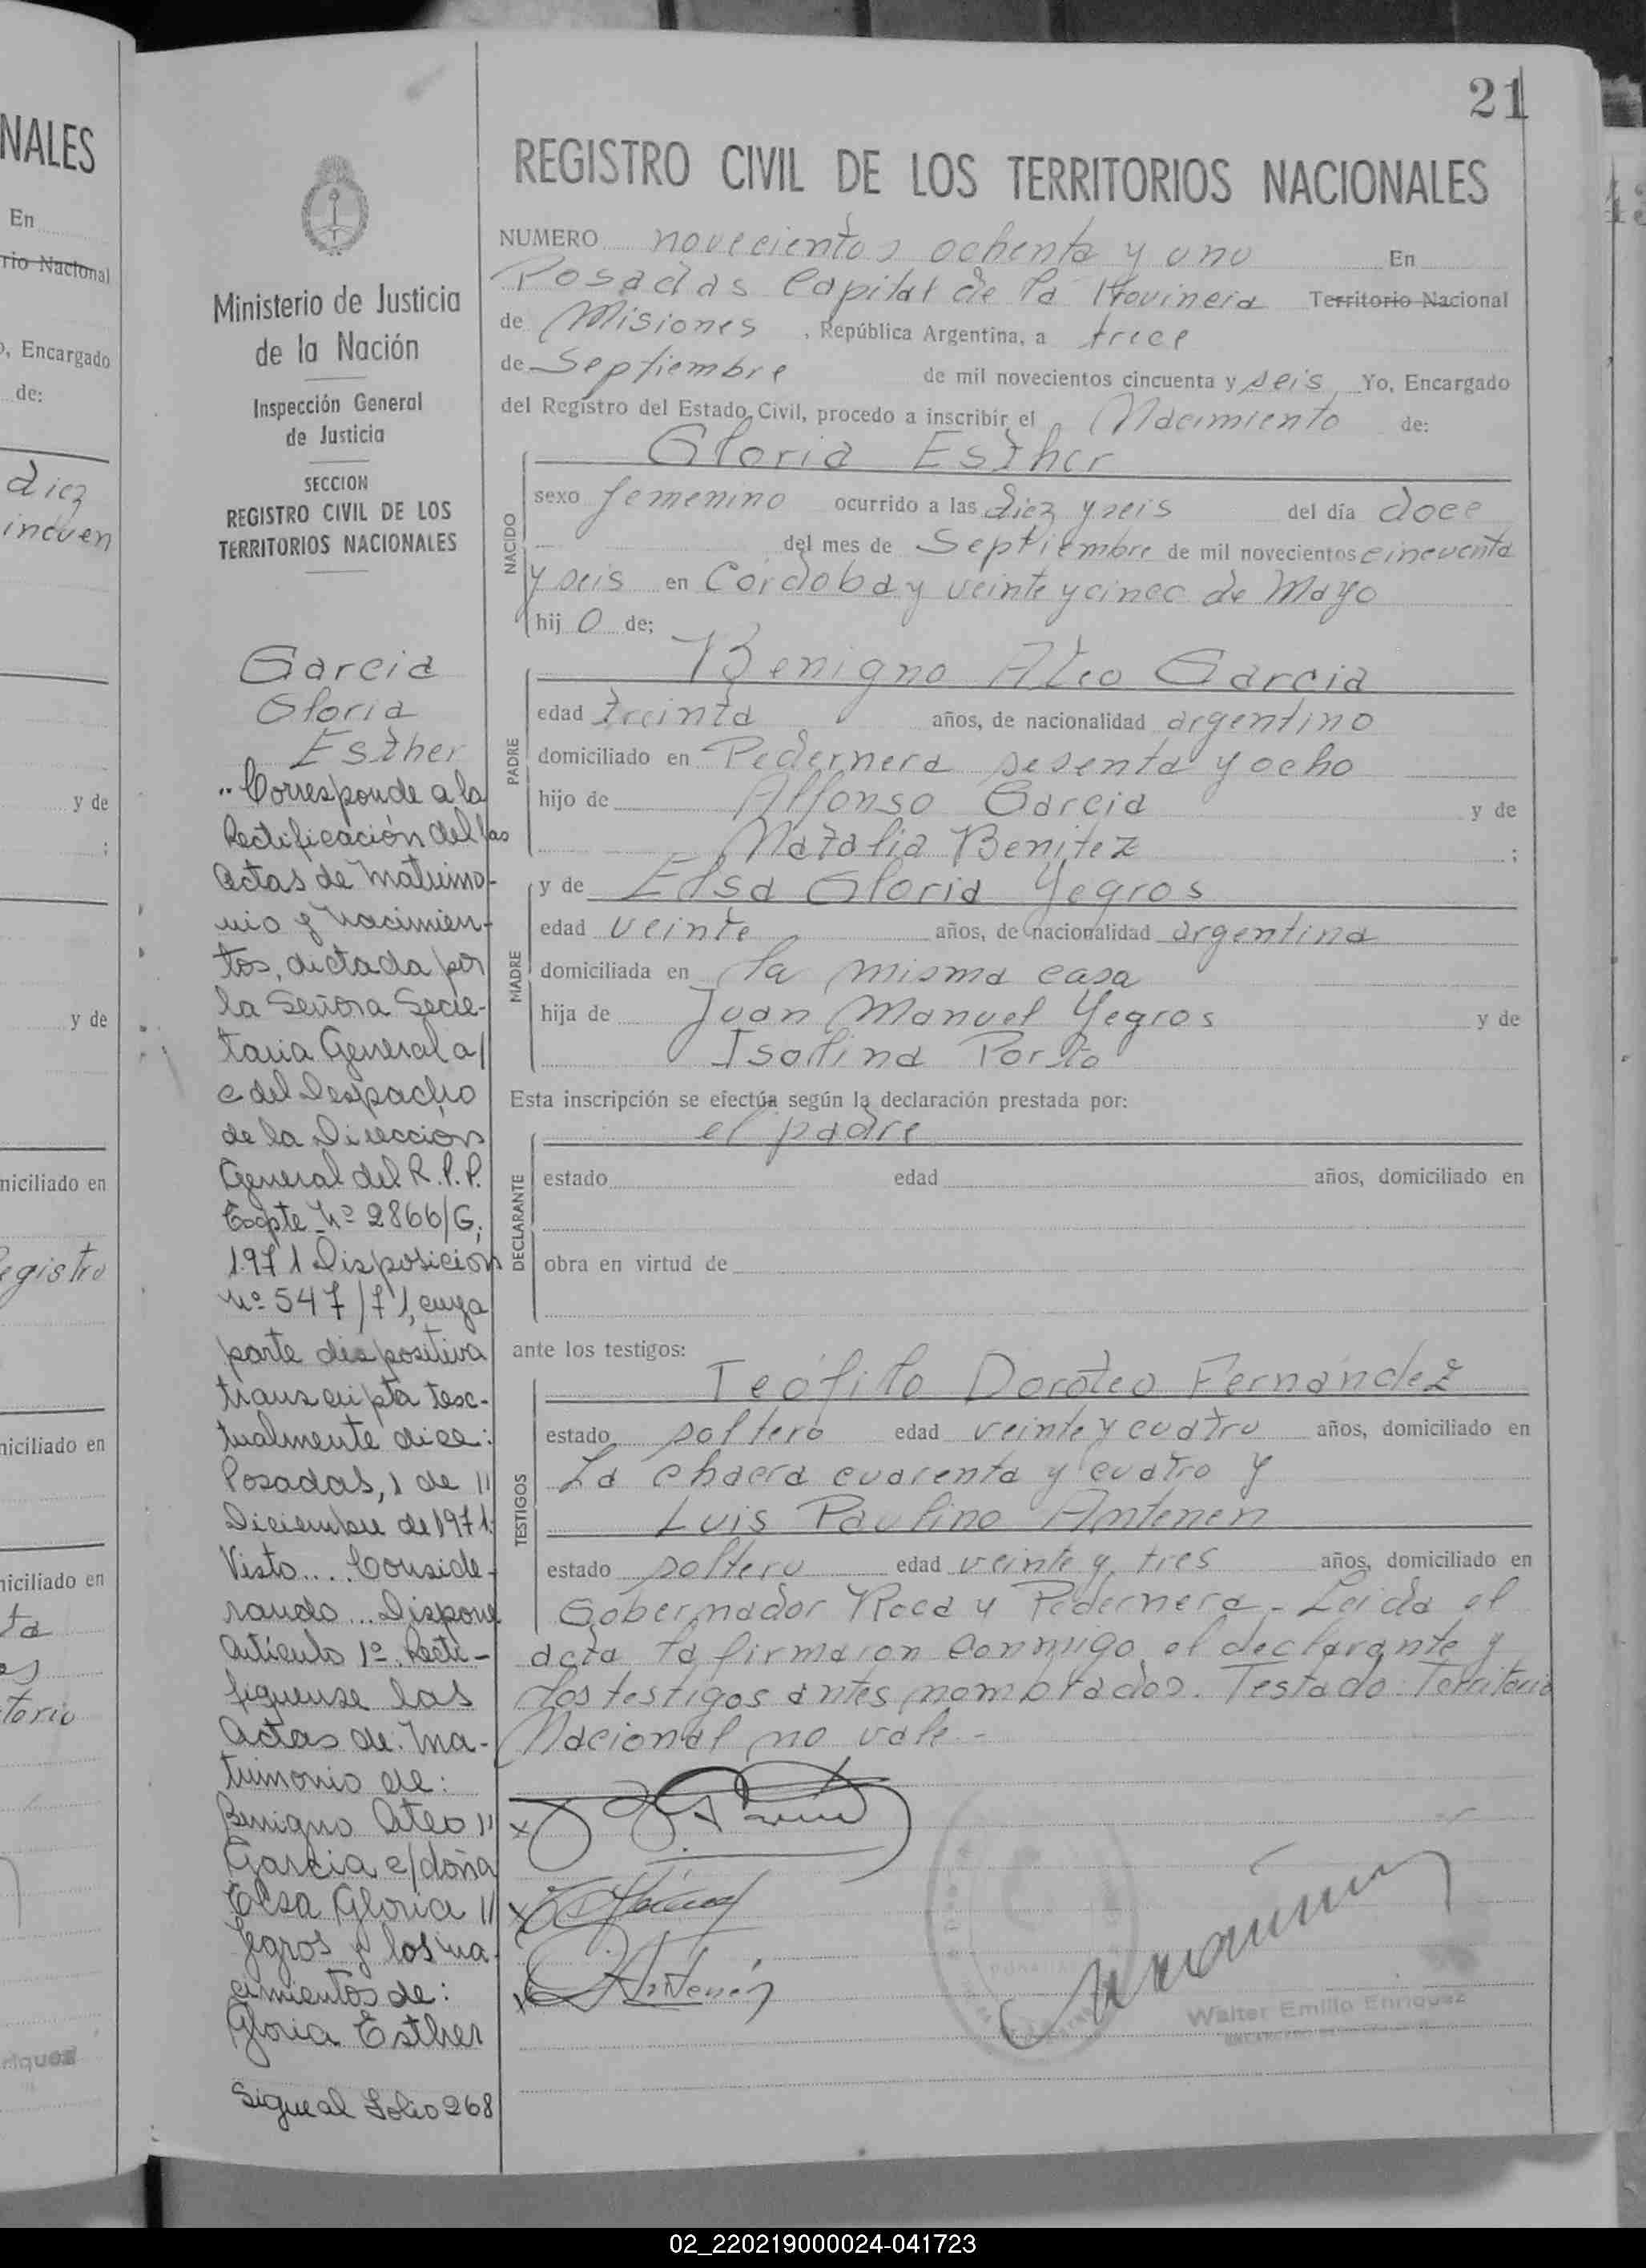 NALES
En
rio Nacional
o, Encargado
de:
diez
incuen
y de
;
y de
miciliado en
egistro
niciliado en
niciliado en
ta
es
torio
Ministerio de Justicia
de la Nación
Inspección General
de Justicia
SECCION
REGISTRO CIVIL DE LOS
TERRITORIOS NACIONALES
Garcia
Gloria
Esther
"Corresponde a la
Rectificación del las
Actas de Matrimo-
nio y Nacimien-
tos, dictada por
la Señora Secre-
taria General a/
c del Despacho
de la Dirección
General del R.P.P.
Expte Nº 2866/G,
1971 Disposición
Nº 547/71, cuya
parte dispositiva
transcripta tex-
tualmente dice:
Posadas, 1 de //
Diciembre de 1971.
Visto.... Conside-
rando... Dispone
Artículo 1º. Recti-
fiquense las
Actas de: Ma-
trimonio de:
Benigno Ateo //
Garcia c/doña
Elsa Gloria //
Yegros y los na-
cimientos de:
Gloria Esther
Sigue al Folio 268
21
REGISTRO CIVIL DE LOS TERRITORIOS NACIONALES
NUMERO novecientos ochenta y uno En
Posadas Capital de la Provincia Territorio Nacional
de Misiones, República Argentina, a trece
de Septiembre de mil novecientos cincuenta y seis Yo, Encargado
del Registro del Estado Civil, procedo a inscribir el Nacimiento de:
Gloria Esther
NACIDO
sexo femenino ocurrido a las diez y seis del día doce
del mes de Septiembre de mil novecientos cincuenta
y seis en Córdoba y veinte y cinco de Mayo
hij o de;
Benigno Ateo Garcia
PADRE
edad treinta años, de nacionalidad argentino
domiciliado en Pedernera sesenta y ocho
hijo de Alfonso Garcia y de
Natalia Benitez ;
y de Elsa Gloria Yegros
MADRE
edad veinte años, de nacionalidad argentina
domiciliada en la misma casa
hija de Juan Manuel Yegros y de
Isolina Porto
Esta inscripción se efectúa según la declaración prestada por:
el padre
DECLARANTE
estado edad años, domiciliado en
obra en virtud de
ante los testigos:
Teófilo Doroteo Fernández
TESTIGOS
estado soltero edad veinte y cuatro años, domiciliado en
La chacra cuarenta y cuatro y
Luis Paulino Antenen
estado soltero edad veinte y tres años, domiciliado en
Gobernador Roca y Pedernera - Leida el
acta la firmaron conmigo el declarante y
los testigos antes nombrados. Testado: Territorio
Nacional no vale -
Antenen
Walter Emilio Enriquez
02_220219000024-041723